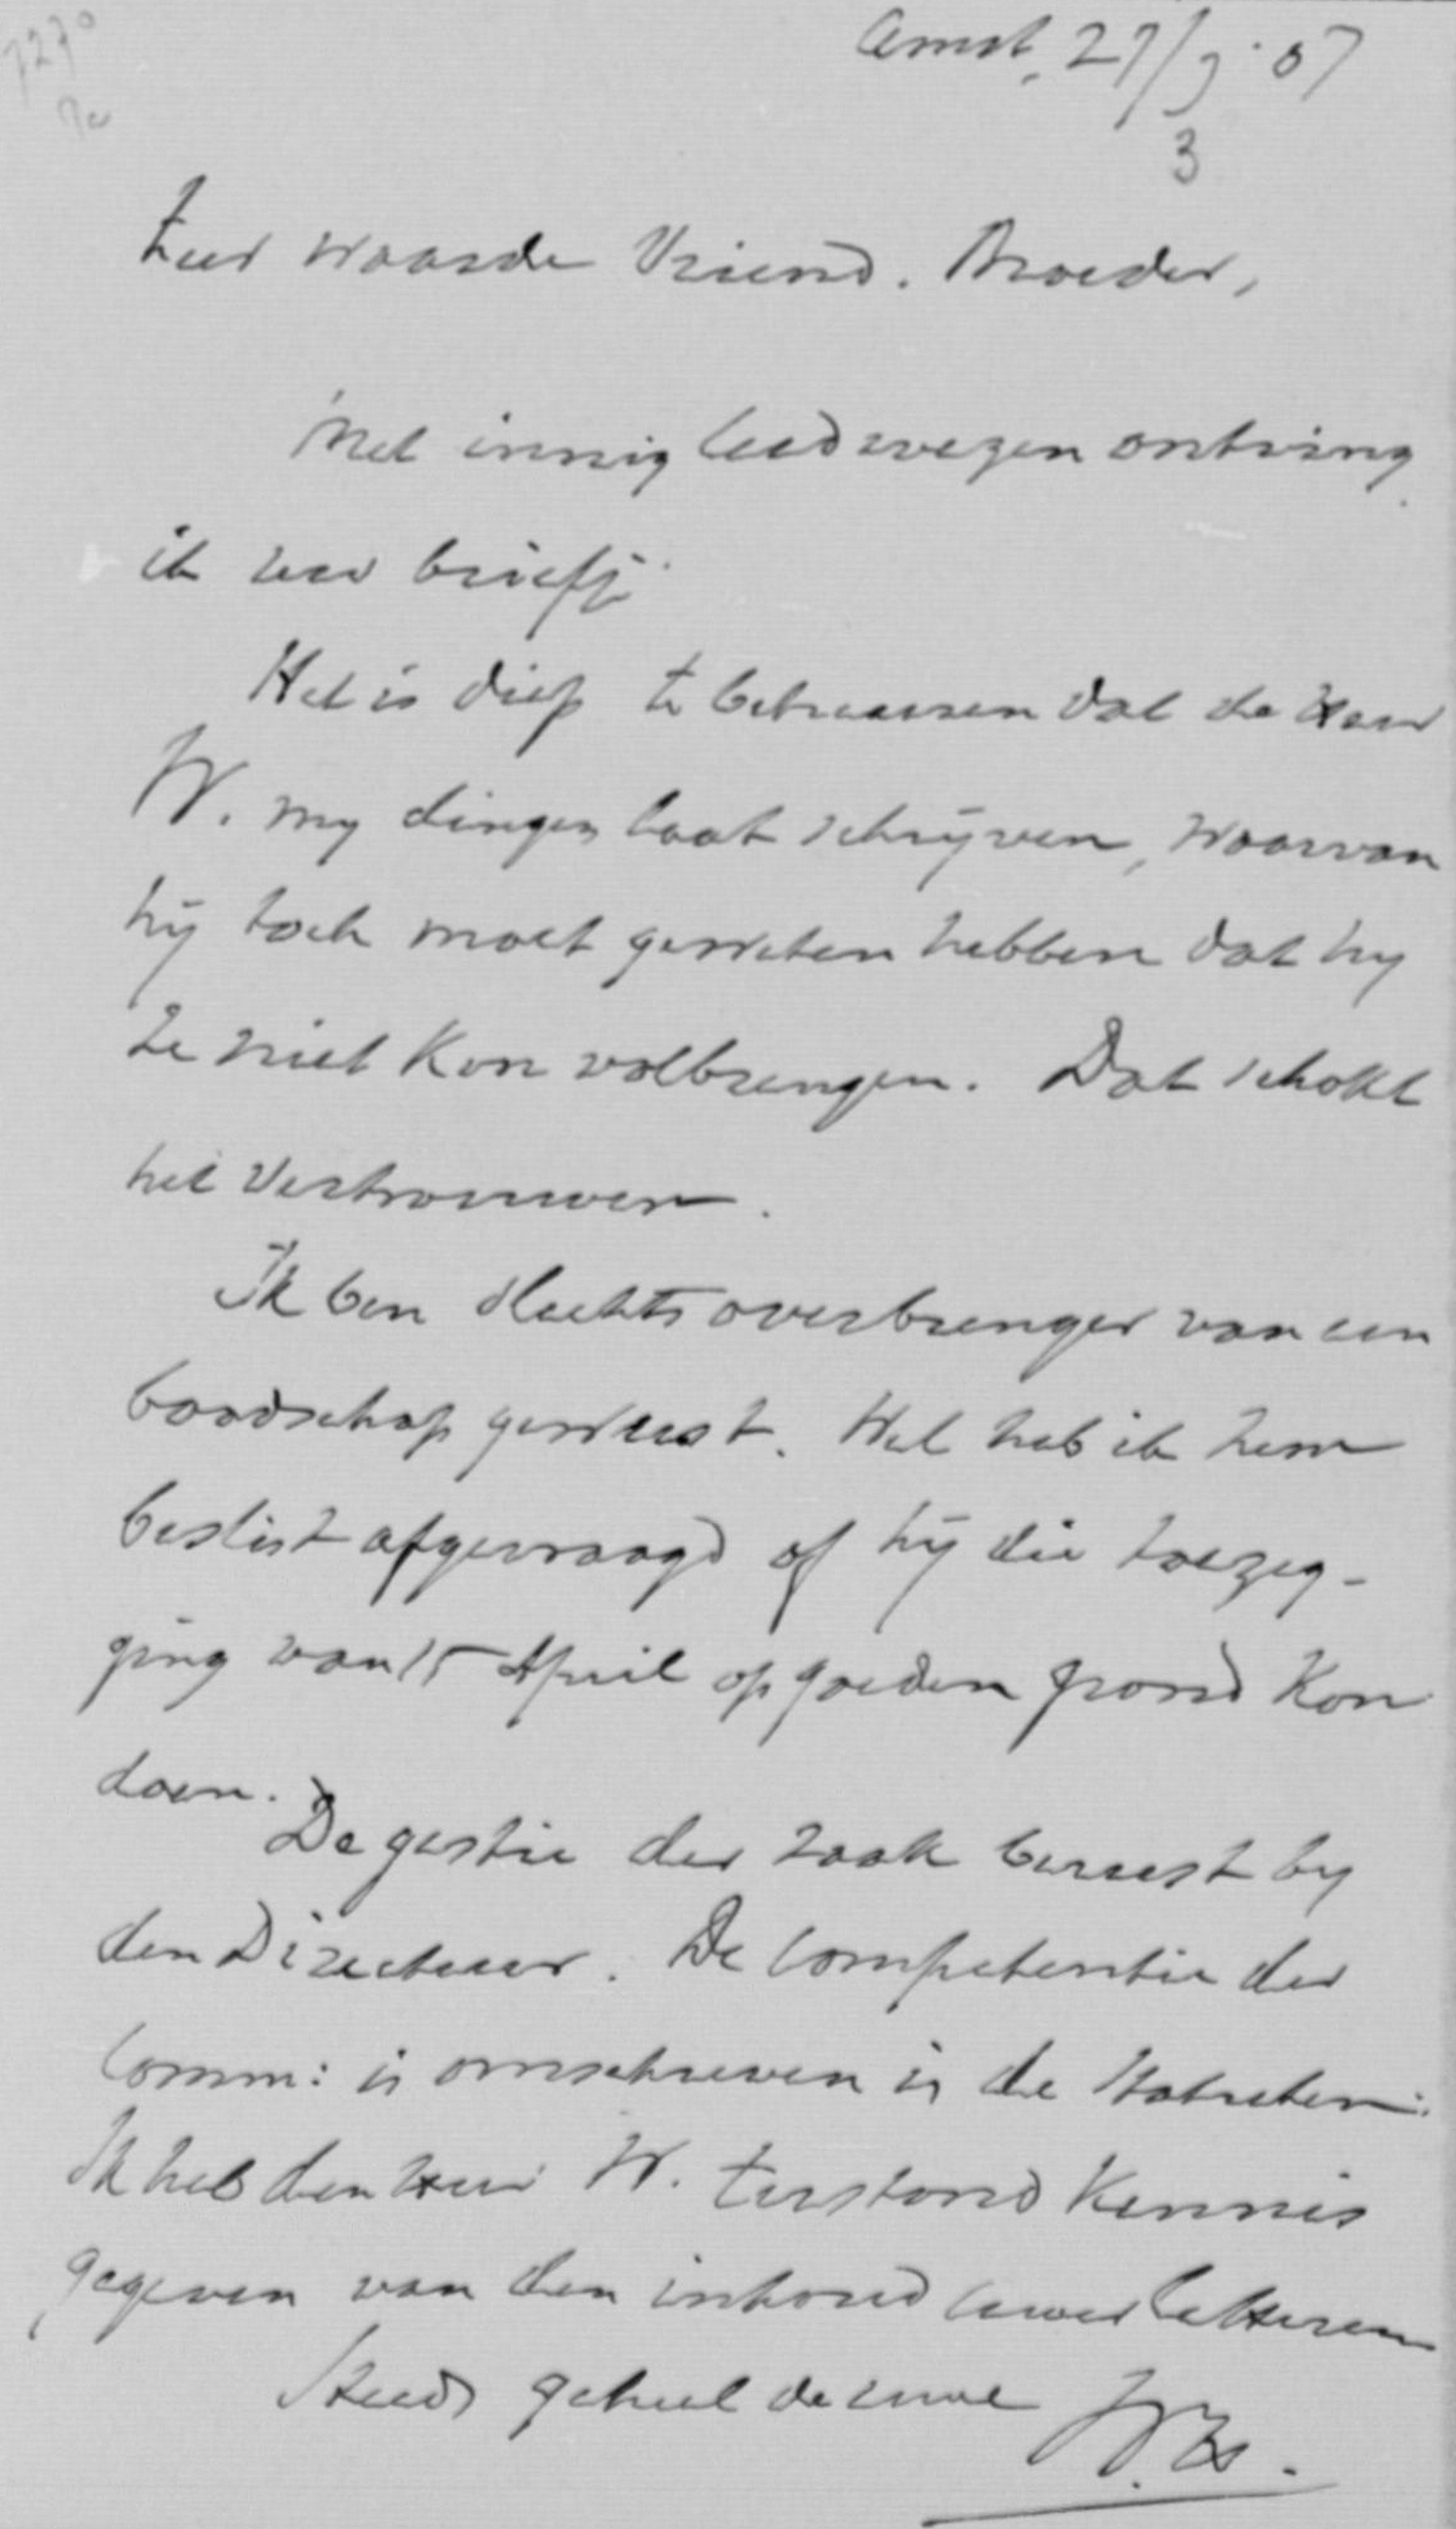 7270
Amst, 27/3 '07
3
Zeer waarde Vriend. Broeder,
Met innig leedwezen ontving
ik uw briefje.
Het is diep te betreuren dat de Heer
W. my dingen laat schrijven, waarvan
hij toch moet geweten hebben dat hy
ze niet kon volbrengen. Dat schokt
het vertrouwen.
Ik ben slechts overbrenger van een
boodschap geweest. Wel heb ik hem
beslist afgevraagd of hij die toezeg-
ging van 15 April op goeden grond kon
doen.
De gestie der zaak berust by
den Directeur. De Competentie der
Comm: is omschreven in de Statuten.
Ik heb den Heer W. terstond kennis
gegeven van den inhoud uwer letteren
Steeds geheel de uwe